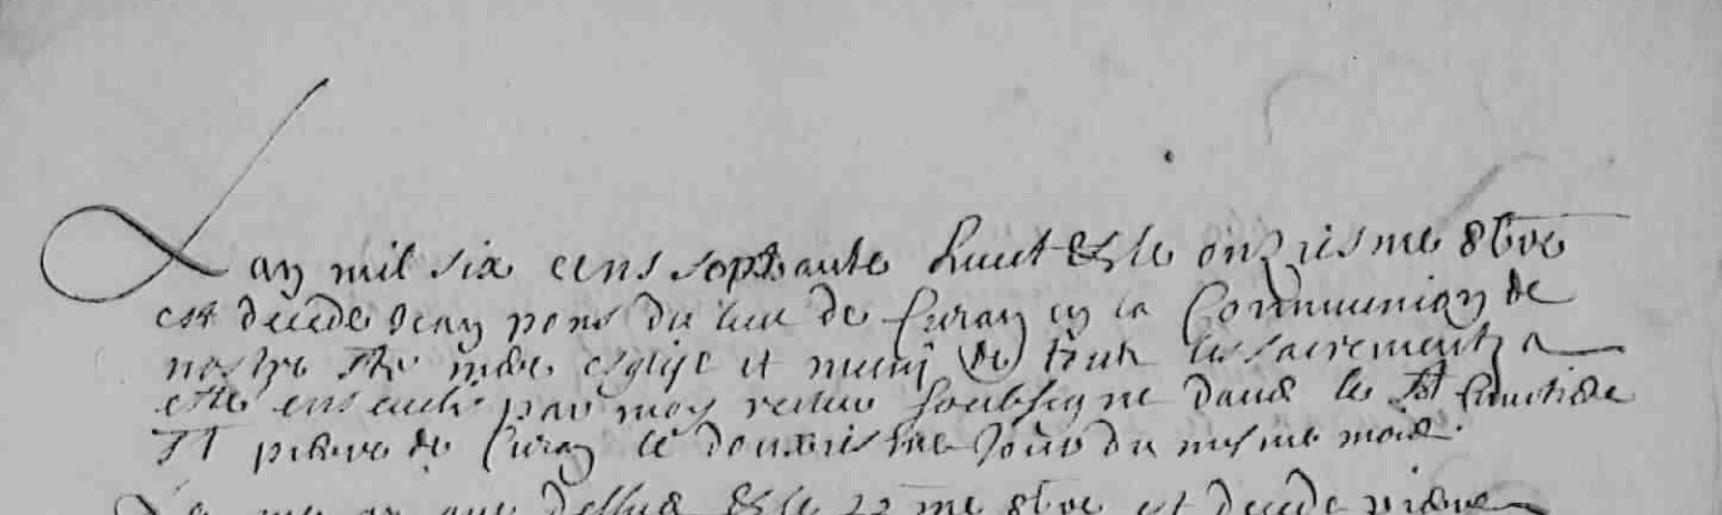 Lan mil six cens septante huict & le onziesme 8bre
est decede Jean pons du lieu de Curan en la Communion de
nostre Ste mère esglise et muni de touts les sacrements a
esté enseveli par moy vicaire soubsigne dans le St
St pierre de Curan le douxiesme Jour du mesme mois.
que dessus & le 22 me 8bre est decede pierre